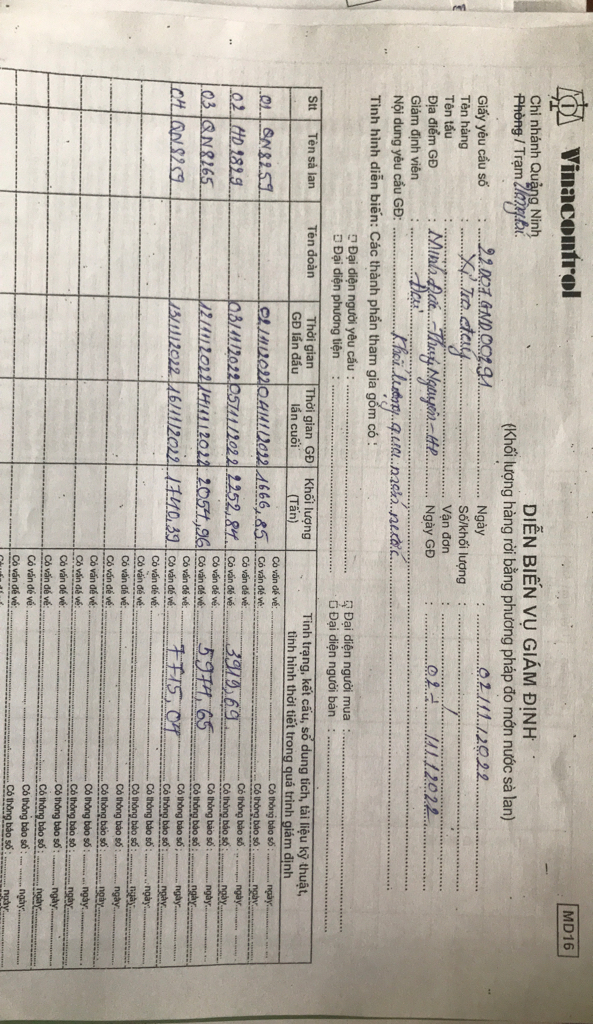 Vinacontrol
Chi nhánh Quảng Ninh
Phòng / Trạm
MD16
DIỄN BIẾN VỤ GIÁM ĐỊNH
(Khối lượng hàng rời bằng phương pháp đo mớn nước sà lan)
Giấy yêu cầu số : 22G07GND00291 Ngày : 02/11/2022
Tên hàng : Xỉ Số/khối lượng :
Tên tàu : Vận đơn : /
Địa điểm GĐ : Minh Đức - Thuỷ Nguyên - HP Ngày GĐ : 02- /11/2022
Giám định viên : Đại
Nội dung yêu cầu GĐ: Khối lượng qua mớn nước
Tình hình diễn biến: Các thành phần tham gia gồm có :
□ Đại diện người yêu cầu : □ Đại diện người mua :
□ Đại diện phương tiện : □ Đại diện người bán :
Stt Tên sà lan Tên đoàn Thời gian GĐ lần đầu Thời gian GĐ lần cuối Khối lượng (Tấn) Tình trạng, kết cấu, số dung tích, tài liệu kỹ thuật, tình hình thời tiết trong quá trình giám định
01 QN8259 02/11/2022 04/11/2022 1666,85 Có vấn đề về: Có thông báo số : ngày
02 HD2829 03/11/2022 05/11/2022 2252,84 Có vấn đề về: 3919,69 Có thông báo số : ngày
03 QN8165 12/11/2022 14/11/2022 2054,96 Có vấn đề về: 5974,65 Có thông báo số : ngày
04 QN8259 13/11/2022 16/11/2022 1740,39 Có vấn đề về: 7715,04 Có thông báo số : ngày
Có vấn đề về: Có thông báo số : ngày
Có vấn đề về: Có thông báo số : ngày
Có vấn đề về: Có thông báo số : ngày
Có vấn đề về: Có thông báo số : ngày
Có vấn đề về: Có thông báo số : ngày
Có vấn đề về: Có thông báo số : ngày